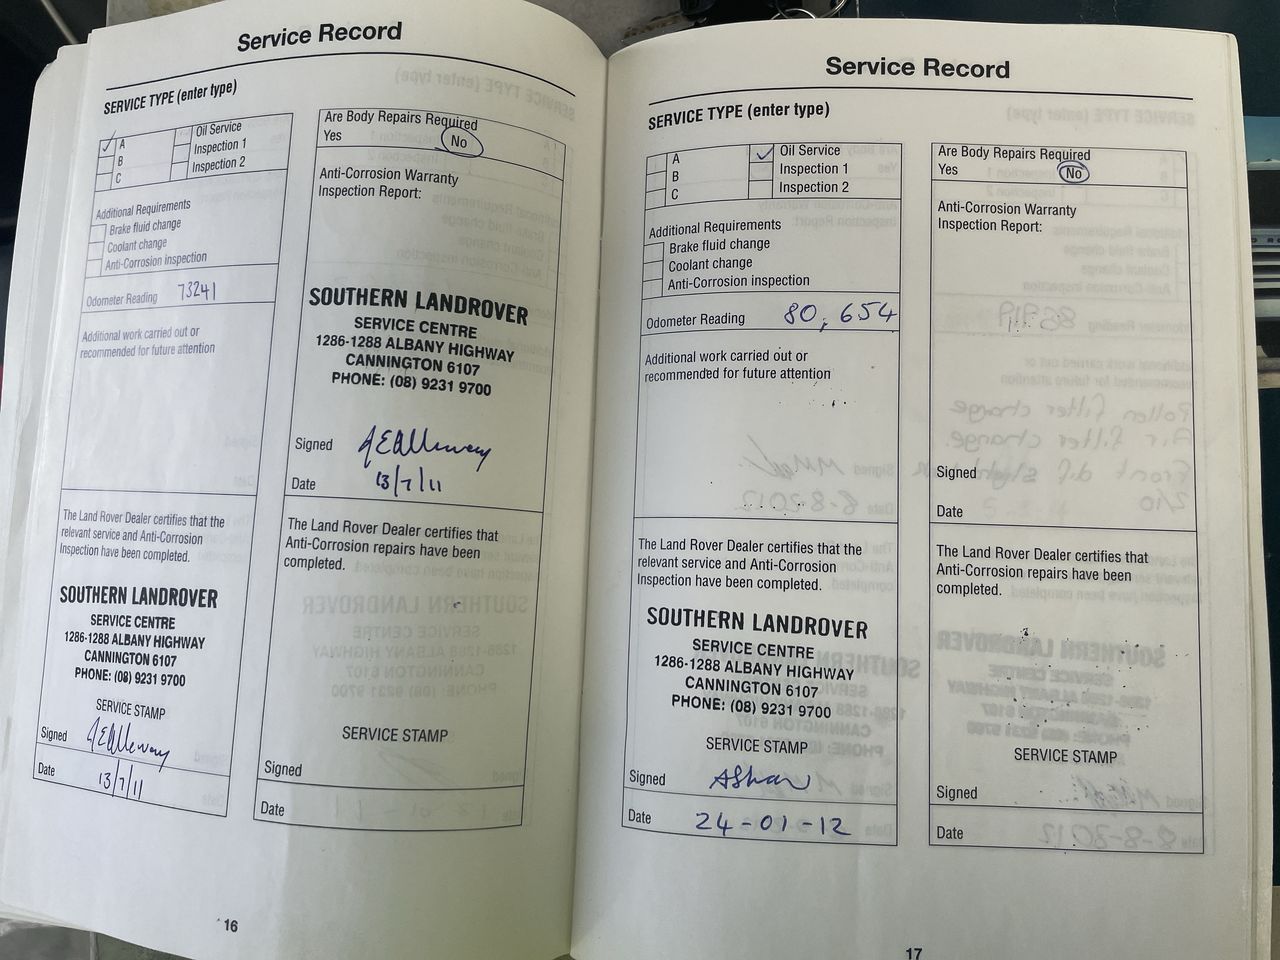 Service Record
SERVICE TYPE (enter type)
A
B
C
Oil Service
Inspection 1
Inspection 2
Additional Requirements
Brake fluid change
Coolant change
Anti-Corrosion inspection
Odometer Reading 73241
Additional work carried out or
recommended for future attention
The Land Rover Dealer certifies that the
relevant service and Anti-Corrosion
Inspection have been completed.
SOUTHERN LANDROVER
SERVICE CENTRE
1286-1288 ALBANY HIGHWAY
CANNINGTON 6107
PHONE: (08) 9231 9700
SERVICE STAMP
Signed
Date 13/7/11
Are Body Repairs Required
Yes No
Anti-Corrosion Warranty
Inspection Report:
SOUTHERN LANDROVER
SERVICE CENTRE
1286-1288 ALBANY HIGHWAY
CANNINGTON 6107
PHONE: (08) 9231 9700
Signed
Date 13/7/11
The Land Rover Dealer certifies that
Anti-Corrosion repairs have been
completed.
SERVICE STAMP
Signed
Date
16
Service Record
SERVICE TYPE (enter type)
A
B
C
Oil Service
Inspection 1
Inspection 2
Additional Requirements
Brake fluid change
Coolant change
Anti-Corrosion inspection
Odometer Reading 80,654
Additional work carried out or
recommended for future attention
The Land Rover Dealer certifies that the
relevant service and Anti-Corrosion
Inspection have been completed.
SOUTHERN LANDROVER
SERVICE CENTRE
1286-1288 ALBANY HIGHWAY
CANNINGTON 6107
PHONE: (08) 9231 9700
SERVICE STAMP
Signed
Date 24-01-12
Are Body Repairs Required
Yes No
Anti-Corrosion Warranty
Inspection Report:
Signed
Date
The Land Rover Dealer certifies that
Anti-Corrosion repairs have been
completed.
SERVICE STAMP
Signed
Date
17